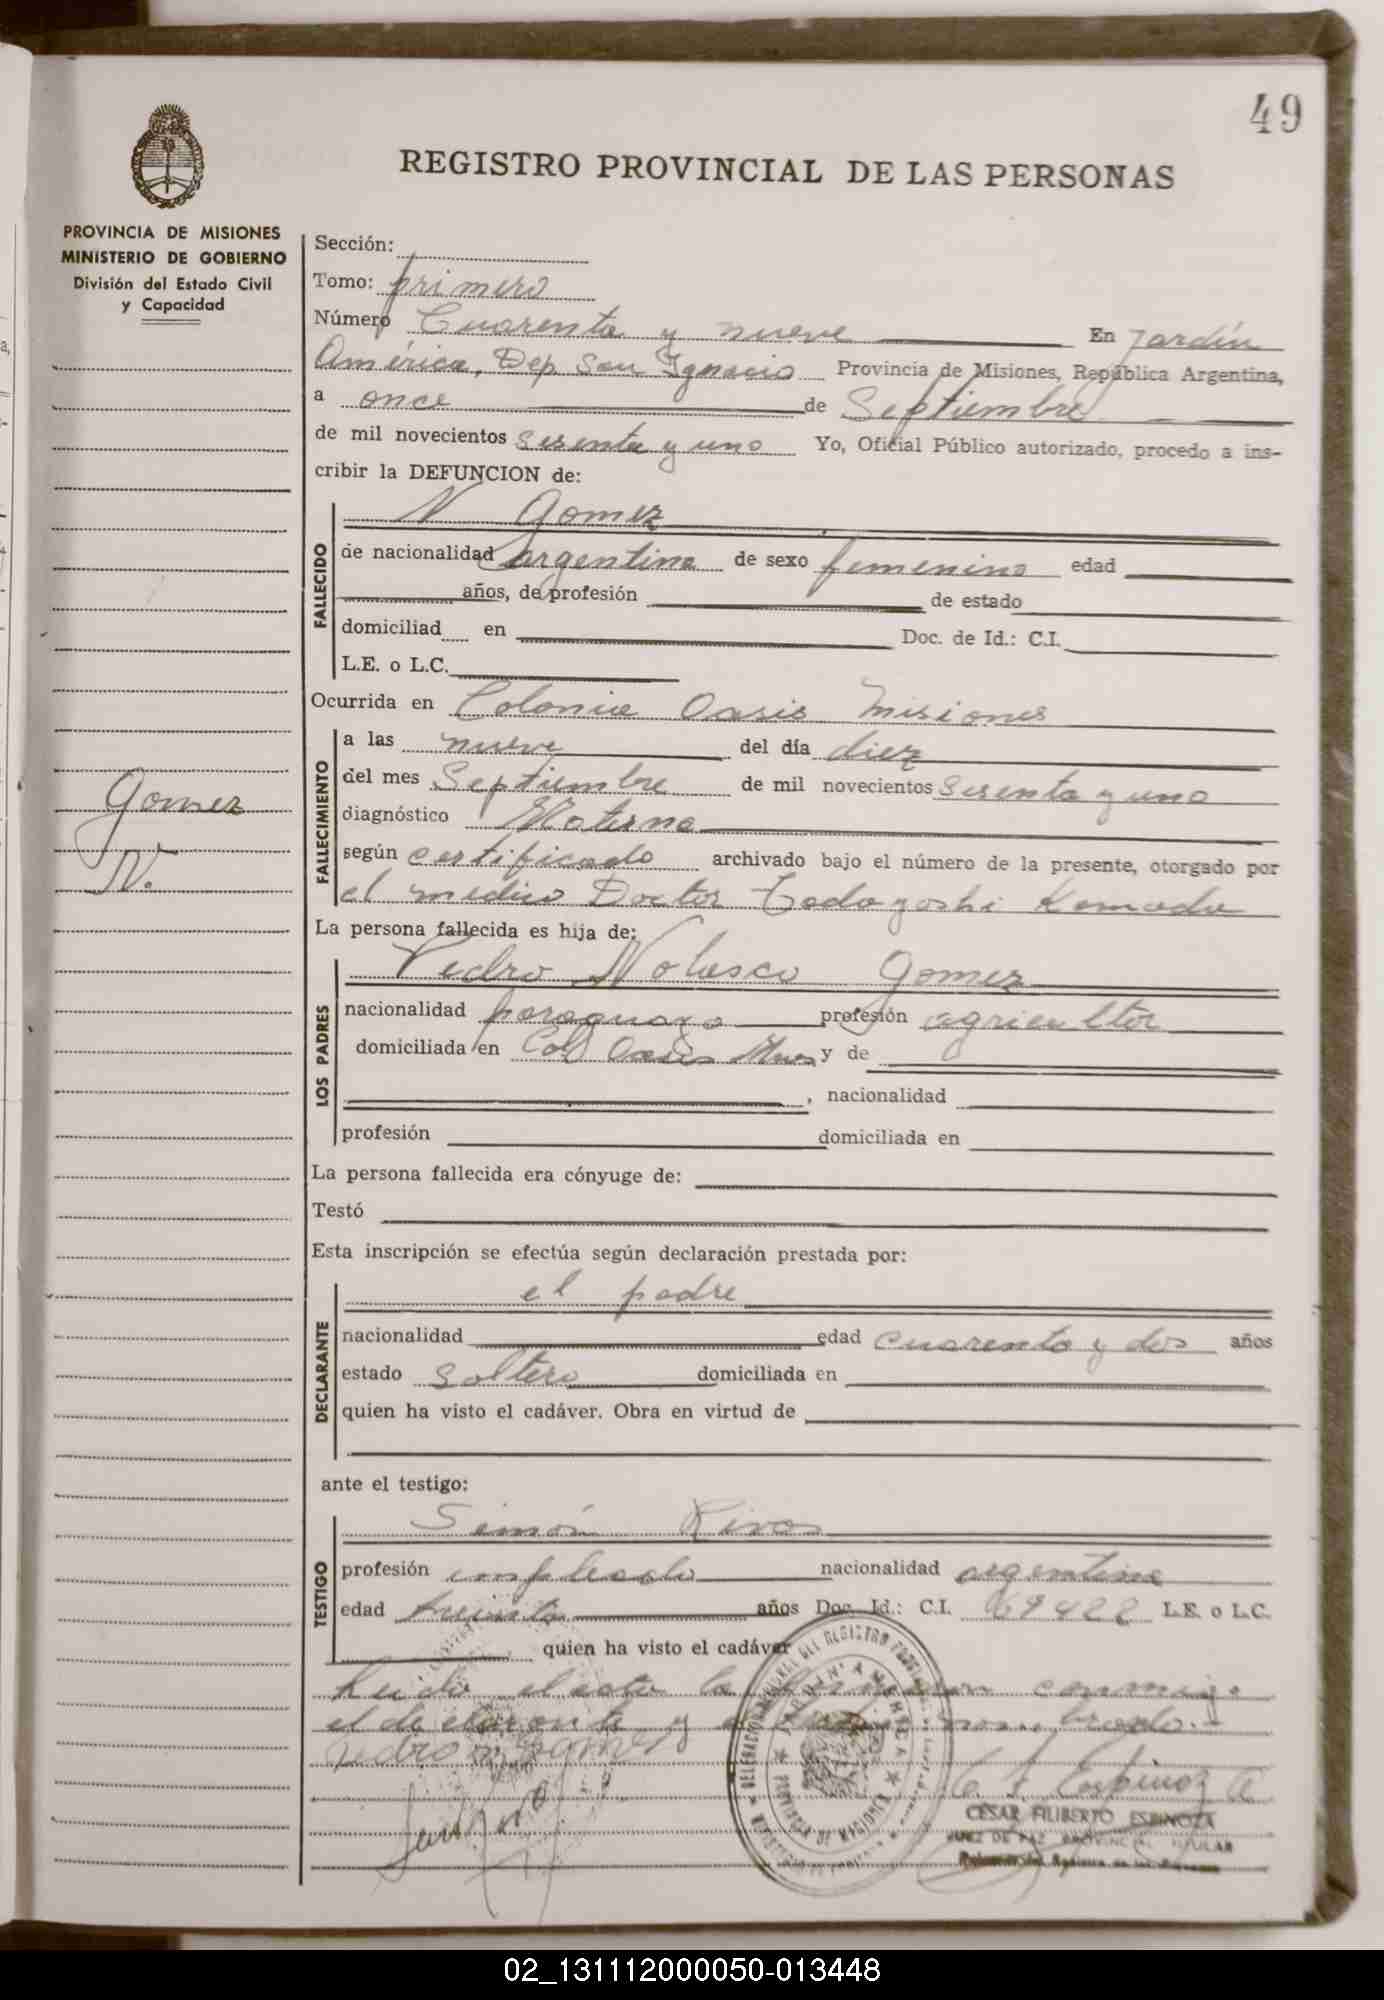 49
REGISTRO PROVINCIAL DE LAS PERSONAS
PROVINCIA DE MISIONES
MINISTERIO DE GOBIERNO
División del Estado Civil
y Capacidad
Gomez
N.
Sección:
Tomo: primero
Número Cuarenta y nueve En Jardín
América, Dep. San Ignacio Provincia de Misiones, República Argentina,
a once de Septiembre
de mil novecientos sesenta y uno Yo, Oficial Público autorizado, procedo a ins-
cribir la DEFUNCION de:
FALLECIDO
N Gomez
de nacionalidad argentina de sexo femenino edad
años, de profesión de estado
domiciliad en Doc. de Id.: C.I.
L.E. o L.C.
Ocurrida en Colonia Oasis Misiones
FALLECIMIENTO
a las nueve del día diez
del mes Septiembre de mil novecientos sesenta y uno
diagnóstico Materna
según certificado archivado bajo el número de la presente, otorgado por
el medico Doctor Tadayoshi Kamada
La persona fallecida es hija de:
LOS PADRES
Pedro Nolasco Gomez
nacionalidad paraguaya profesión agricultor
domiciliada en Col Oasis Mnes y de
, nacionalidad
profesión domiciliada en
La persona fallecida era cónyuge de:
Testó
Esta inscripción se efectúa según declaración prestada por:
DECLARANTE
el padre
nacionalidad edad cuarenta y dos años
estado soltero domiciliada en
quien ha visto el cadáver. Obra en virtud de
ante el testigo:
TESTIGO
Simón Rivas
profesión empleado nacionalidad argentina
edad treinta años Doc. Id.: C.I. 69422 L.E. o L.C.
quien ha visto el cadáver
Leida el acta la firmaron conmigo
el declarante y nombrado.-
Pedro N Gomez
C. F. Espinoza
CESAR FILIBERTO ESPINOZA
JUEZ DE PAZ PROVINCIAL TITULAR
JARDIN AMERICA
PROVINCIA DE MISIONES
02_131112000050-013448